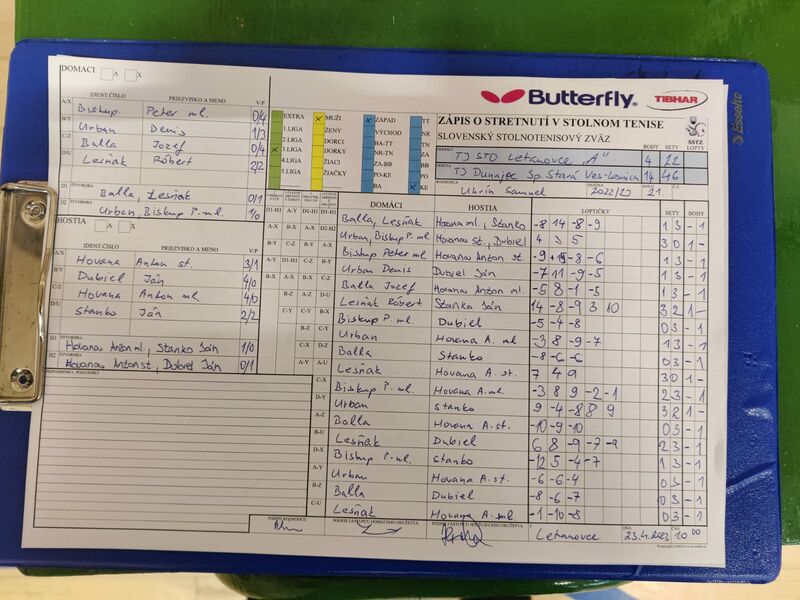 DOMACI A X
IDENT.ČÍSLO PRIEZVISKO A MENO V/P
A/X Biskup Peter ml. 0/4
B/Y Urban Denis 1/3
C/Z Balla Jozef 0/4
D/U Lesňák Róbert 2/2
D1 ŠTVORHRA Balla, Lesňák 0/1
D2 Urban, Biskup P. ml. 1/0
HOSTIA A X
IDENT.ČÍSLO PRIEZVISKO A MENO V/P
A/X Hovana Anton st. 3/1
B/Y Dubiel Ján 4/0
C/Z Hovana Anton ml. 4/0
D/U Stanko Ján 2/2
H1 ŠTVORHRA Hovana Anton ml., Stanko Ján 1/0
H2 ŠTVORHRA Hovana Anton st., Dubiel Ján 0/1
PRIPOMIENKY, POZNÁMKY
EXTRA
1.LIGA
2.LIGA
x 3.LIGA
4.LIGA
5.LIGA
x MUŽI
ŽENY
DORCI
DORKY
ŽIACI
ŽIAČKY
x ZÁPAD
VÝCHOD
BA-TT
TN-ZA
ZA-BB
PO-KE
BA
TT
NR
TN
ZA
BB
PO
x KE
Butterfly TIBHAR
ZÁPIS O STRETNUTÍ V STOLNOM TENISE
SLOVENSKÝ STOLNOTENISOVÝ ZVÄZ
SSTZ
BODY SETY LOPTY
DOMÁCI TJ STO Letanovce "A" 4 22
HOSTIA TJ Dunajec Sp. Stará Ves-Lesnica 14 46
ROZHODCA Uhrin Samuel SEZÓNA 2022/23 KOLO 21
DOMÁCI HOSTIA LOPTIČKY SETY BODY
Balla, Lesňák Hovana ml., Stanko -8 14 -8 -9 1 3 - 1
Urban, Biskup P. ml. Hovana st., Dubiel 4 3 5 3 0 1 -
Biskup Peter ml. Hovana Anton st. -8 -6 1 3 - 1
Urban Denis Dubiel Ján -7 11 -9 -5 1 3 - 1
Balla Jozef Hovana Anton ml. -5 8 -1 -5 1 3 - 1
Lesňák Róbert Stanko Ján 14 -8 -9 3 10 3 2 1 -
Biskup P. ml. Dubiel -5 -4 -8 0 3 - 1
Urban Hovana A. ml -3 8 -9 -7 1 3 - 1
Balla Stanko -8 -6 -6 0 3 - 1
Lesňák Hovana A. st. 7 4 9 3 0 1 -
Biskup P. ml. Hovana A. ml. -3 8 9 -2 -1 2 3 - 1
Urban Stanko 9 -4 -8 8 9 3 2 1 -
Balla Hovana A. st. -10 -9 -10 0 3 - 1
Lesňák Dubiel 6 8 -9 -7 -9 2 3 - 1
Biskup P. ml. Stanko -12 5 -4 -7 1 3 - 1
Urban Hovana A. st. -6 -6 -4 0 3 - 1
Balla Dubiel -8 -6 -7 0 3 - 1
Lesňák Hovana A. ml -1 -10 -8 0 3 - 1
PODPIS ROZHODCU PODPIS ZÁSTUPCU DOMÁCEHO DRUŽSTVA PODPIS ZÁSTUPCU HOSŤUJÚCEHO DRUŽSTVA
V Letanovce DŇA 23.4.2023 ČAS 10 00